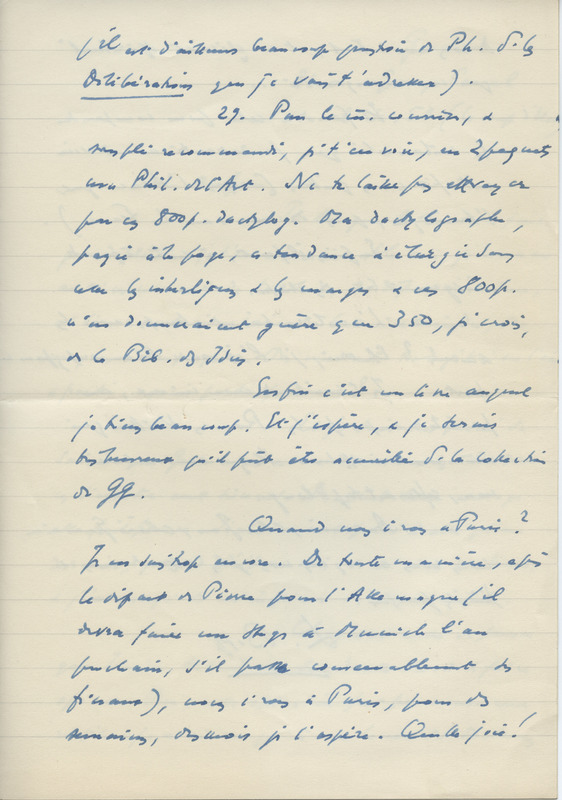 (il est d'ailleurs beaucoup question de Ph. ds les
Délibérations que je vais t'adresser).
29. Par le m. courrier, et
recommandé, je t'envoie, en 2 paquets
ma Phil. de l'Art. Ne te laisse pas effrayer
par ces 800 p. dactylog. Ma dactylographe,
payée à la page, a tendance à élargir dans
les interlignes et les marges et ces 800 p.
n'en donneraient guère que 350, je crois,
de la Bib. des Idées.
Enfin c'est un livre auquel
je tiens beaucoup. Et j'espère, et je serais
très heureux qu'il pût être accueilli ds la collection
de GG.
Quand nous irons à Paris ?
Je ne sais trop encore. De toute manière, après
le départ de Pierre pour l'Allemagne (il
devra faire un stage à Munich l'an
prochain, s'il passe convenablement ses
), nous irons à Paris, pour des
semaines, des mois je l'espère. Quelle joie !